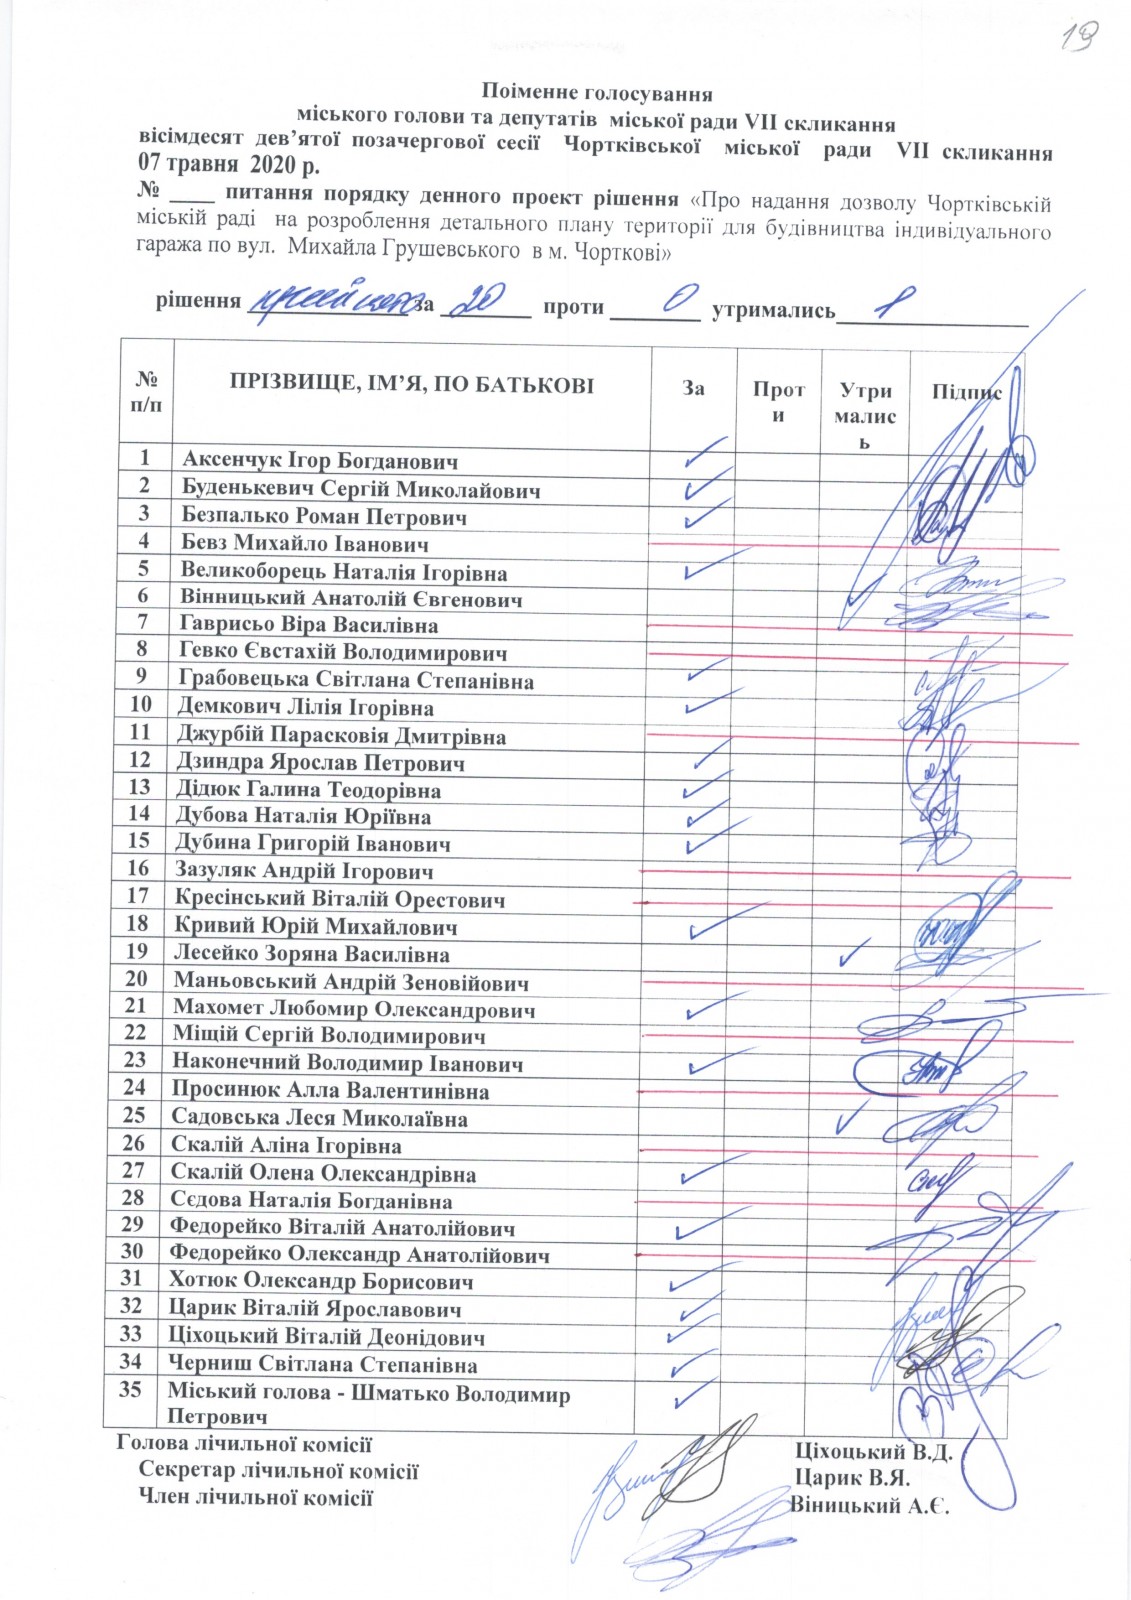 19
Поіменне голосування
міського голови та депутатів міської ради VII скликання
вісімдесят дев’ятої позачергової сесії Чортківської міської ради VII скликання
07 травня 2020 р.
№ ____ питання порядку денного проект рішення «Про надання дозволу Чортківській
міській раді на розроблення детального плану території для будівництва індивідуального
гаража по вул. Михайла Грушевського в м. Чорткові»
рішення прийнято за 20 проти 0 утримались 1
№ п/п ПРІЗВИЩЕ, ІМ’Я, ПО БАТЬКОВІ За Прот и Утри малис ь Підпис
1 Аксенчук Ігор Богданович
2 Буденькевич Сергій Миколайович
3 Безпалько Роман Петрович
4 Бевз Михайло Іванович
5 Великоборець Наталія Ігорівна
6 Вінницький Анатолій Євгенович
7 Гаврисьо Віра Василівна
8 Гевко Євстахій Володимирович
9 Грабовецька Світлана Степанівна
10 Демкович Лілія Ігорівна
11 Джурбій Парасковія Дмитрівна
12 Дзиндра Ярослав Петрович
13 Дідюк Галина Теодорівна
14 Дубова Наталія Юріївна
15 Дубина Григорій Іванович
16 Зазуляк Андрій Ігорович
17 Кресінський Віталій Орестович
18 Кривий Юрій Михайлович
19 Лесейко Зоряна Василівна
20 Маньовський Андрій Зеновійович
21 Махомет Любомир Олександрович
22 Міщій Сергій Володимирович
23 Наконечний Володимир Іванович
24 Просинюк Алла Валентинівна
25 Садовська Леся Миколаївна
26 Скалій Аліна Ігорівна
27 Скалій Олена Олександрівна
28 Сєдова Наталія Богданівна
29 Федорейко Віталій Анатолійович
30 Федорейко Олександр Анатолійович
31 Хотюк Олександр Борисович
32 Царик Віталій Ярославович
33 Ціхоцький Віталій Деонідович
34 Черниш Світлана Степанівна
35 Міський голова - Шматько Володимир
Петрович
Голова лічильної комісії Ціхоцький В.Д.
Секретар лічильної комісії Царик В.Я.
Член лічильної комісії Віницький А.Є.